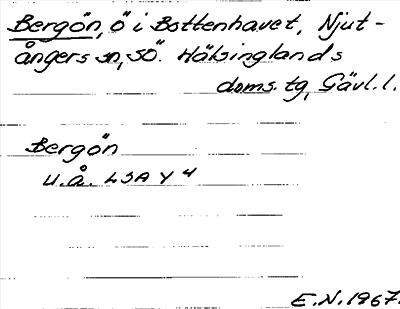 Bergön, ö i Bottenhavet, Njut-
ångers sn, SÖ. Hälsinglands
doms. tg, Gävl. l.
Bergön
u. å. LSA Y 4
E. N. 1967.